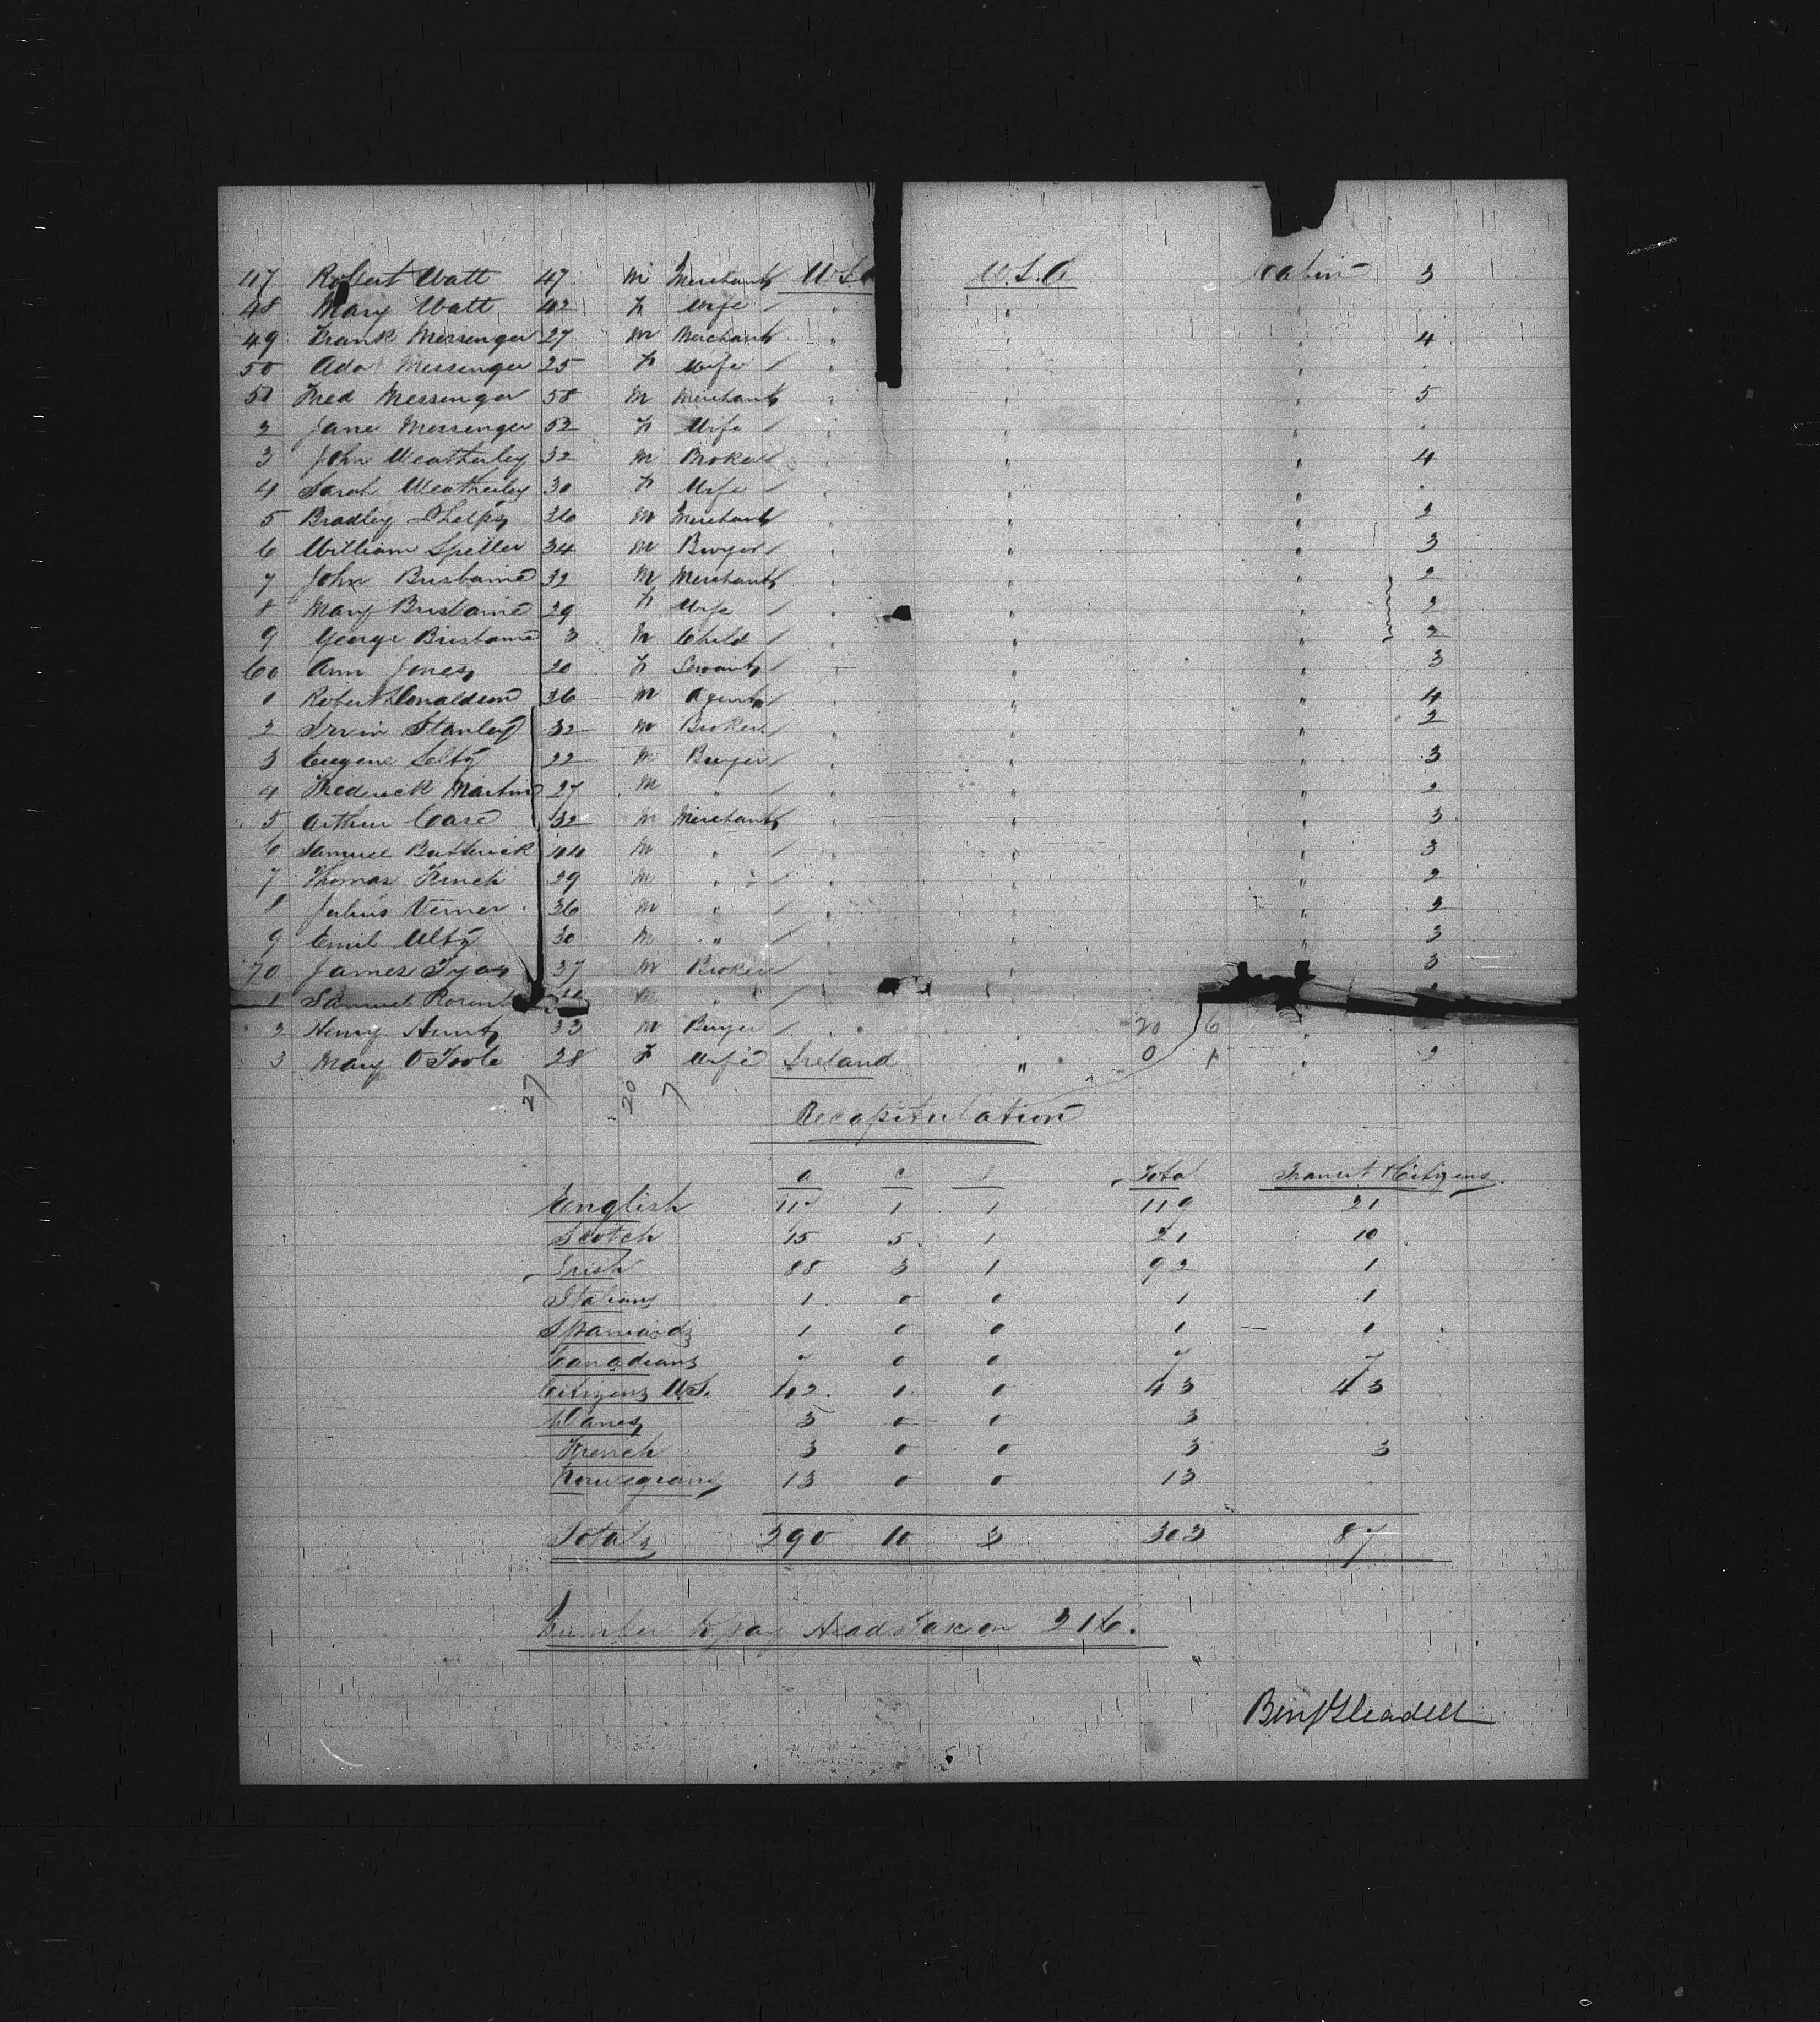 47 Robert Watt 47 M Merchant U.S. U.S.A Cabin 3
48 Mary Watt 42 F Wife / " " "
49 Frank Messenger 27 M Merchant " " " 4
50 Ada Messenger 25 F Wife / " " "
51 Fred Messenger 58 M Merchant " " " 5
2 Jane Messenger 52 F Wife / " " "
3 John Weatherley 32 M Broker " " " 4
4 Sarah Weatherley 30 F Wife / " " "
5 Bradley Phelps 36 M Merchant " " " 2
6 William Speller 34 M Buyer / " " " 3
7 John Brisbaine 32 M Merchant " " " 2
8 Mary Brisbaine 29 F Wife / " " " 2
9 George Brisbaine 3 M Child / " " " 2
60 Ann Jones 20 F Servant / " " " 3
1 Robert Donaldson 36 M Agent / " " " 4
2 Irvin Stanley 32 M Broker / " " " 2
3 Eugene 22 M Buyer / " " " 3
4 Frederick Martin 27 M " / " " " 2
5 Arthur Case 32 M Merchant " " " 3
6 Samuel Butterick 44 M " / " " " 3
7 Thomas Finch 29 M " / " " " 2
8 Julius Verner 36 M " / " " " 2
9 Emil 30 M " / " " " 3
70 James Tyas 37 M Broker " " " 3
1 Samuel M " /
2 Henry Hunt 33 M Buyer / " " 20 6 "
3 Mary O Toole 28 F Wife Ireland " 0 1 " 2
27 20 7
Recapitulation
a c 1 Total Transit & Citizens.
English 117 1 1 119 21
Scotch 15 5 1 21 10
Irish 88 3 1 92 1
Italians 1 0 0 1 1
Spaniards 1 0 0 1 1
Canadians 7 0 0 7 7
Citizens U.S. 42 1 0 43 43
Danes 3 0 0 3
French 3 0 0 3 3
Norwegians 13 0 0 13
Totals 290 10 3 303 87
Number to pay Head Tax on 216.
Benj Gleadell